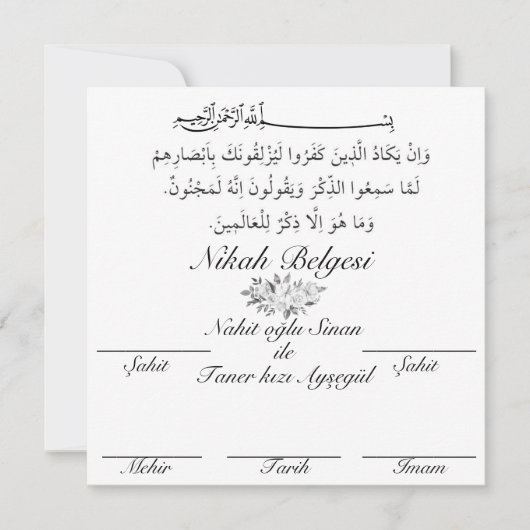 بِسْمِ اللهِ الرَّحْمٰنِ الرَّحِيمِ
وَاِنْ يَكَادُ الَّذٖينَ كَفَرُوا لَيُزْلِقُونَكَ بِاَبْصَارِهِمْ
لَمَّا سَمِعُوا الذِّكْرَ وَيَقُولُونَ اِنَّهُ لَمَجْنُونٌ.
وَمَا هُوَ اِلَّا ذِكْرٌ لِلْعَالَمٖينَ.
Nikah Belgesi
Nahit oğlu Sinan
ile
Şahit
Şahit
Taner kızı Ayşegül
Mehir
Tarih
Imam